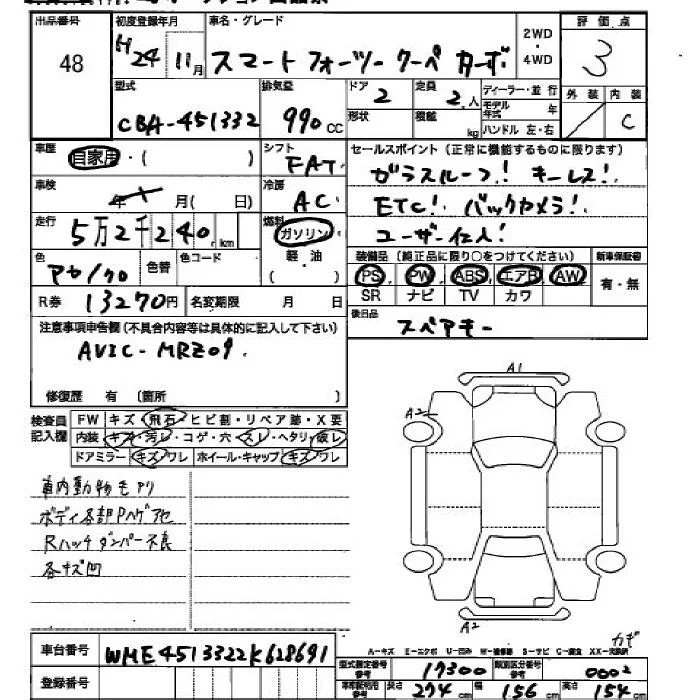 出品番号 48
初度登録年月 H24 11月
車名・グレード スマート フォーツー クーペ カーボ.
2WD ・ 4WD
評価点 3
型式 CBA-451332
排気量 990cc
ドア 2
形状
定員 2.人
積載 kg
ディーラー・並行
モデル年式 年
ハンドル 左・右
外装
内装 C
車歴 自家用・( )
シフト FAT.
セールスポイント(正常に機能するものに限ります)
ガラスルーフ! キーレス!.
ETC! バックカメラ!.
ユーザー仕入!
車検 年 月( 日)
冷房 AC.
走行 5万2千240.km
燃料 ガソリン・軽油( )
色 アカ/クロ
色替
色コード
装備品(純正品に限り○をつけてください)
PS. PW. ABS. エアB. AW.
SR ナビ TV カワ
新車保証書 有・無
R券 13270円
名変期限 月 日
後日品 スペアキー
注意事項申告欄(不具合内容等は具体的に記入して下さい)
AVIC-MRZ09.
修復歴 有 〔箇所 〕
検査員記入欄
FW キズ・飛石・ヒビ割・リペア跡・X要
内装 キズ・汚レ・コゲ・穴・スレ・ヘタリ・破レ
ドアミラー キズ・ワレ ホイール・キャップ キズ・ワレ
車内動物毛アリ
ボディ各部Pハゲアセ
Rハッチダンパー不良
各キズ凹
A1
A2
A2
カギ
A-キズ E-エクボ U-凹み W-補修跡 S-サビ C-腐食 XX-交換済
車台番号 WME4513322K628691
登録番号
型式指定番号 参考 17300
類別区分番号 参考 0002
車検証明書 参考 長さ 274cm 幅 156cm 高さ 154cm